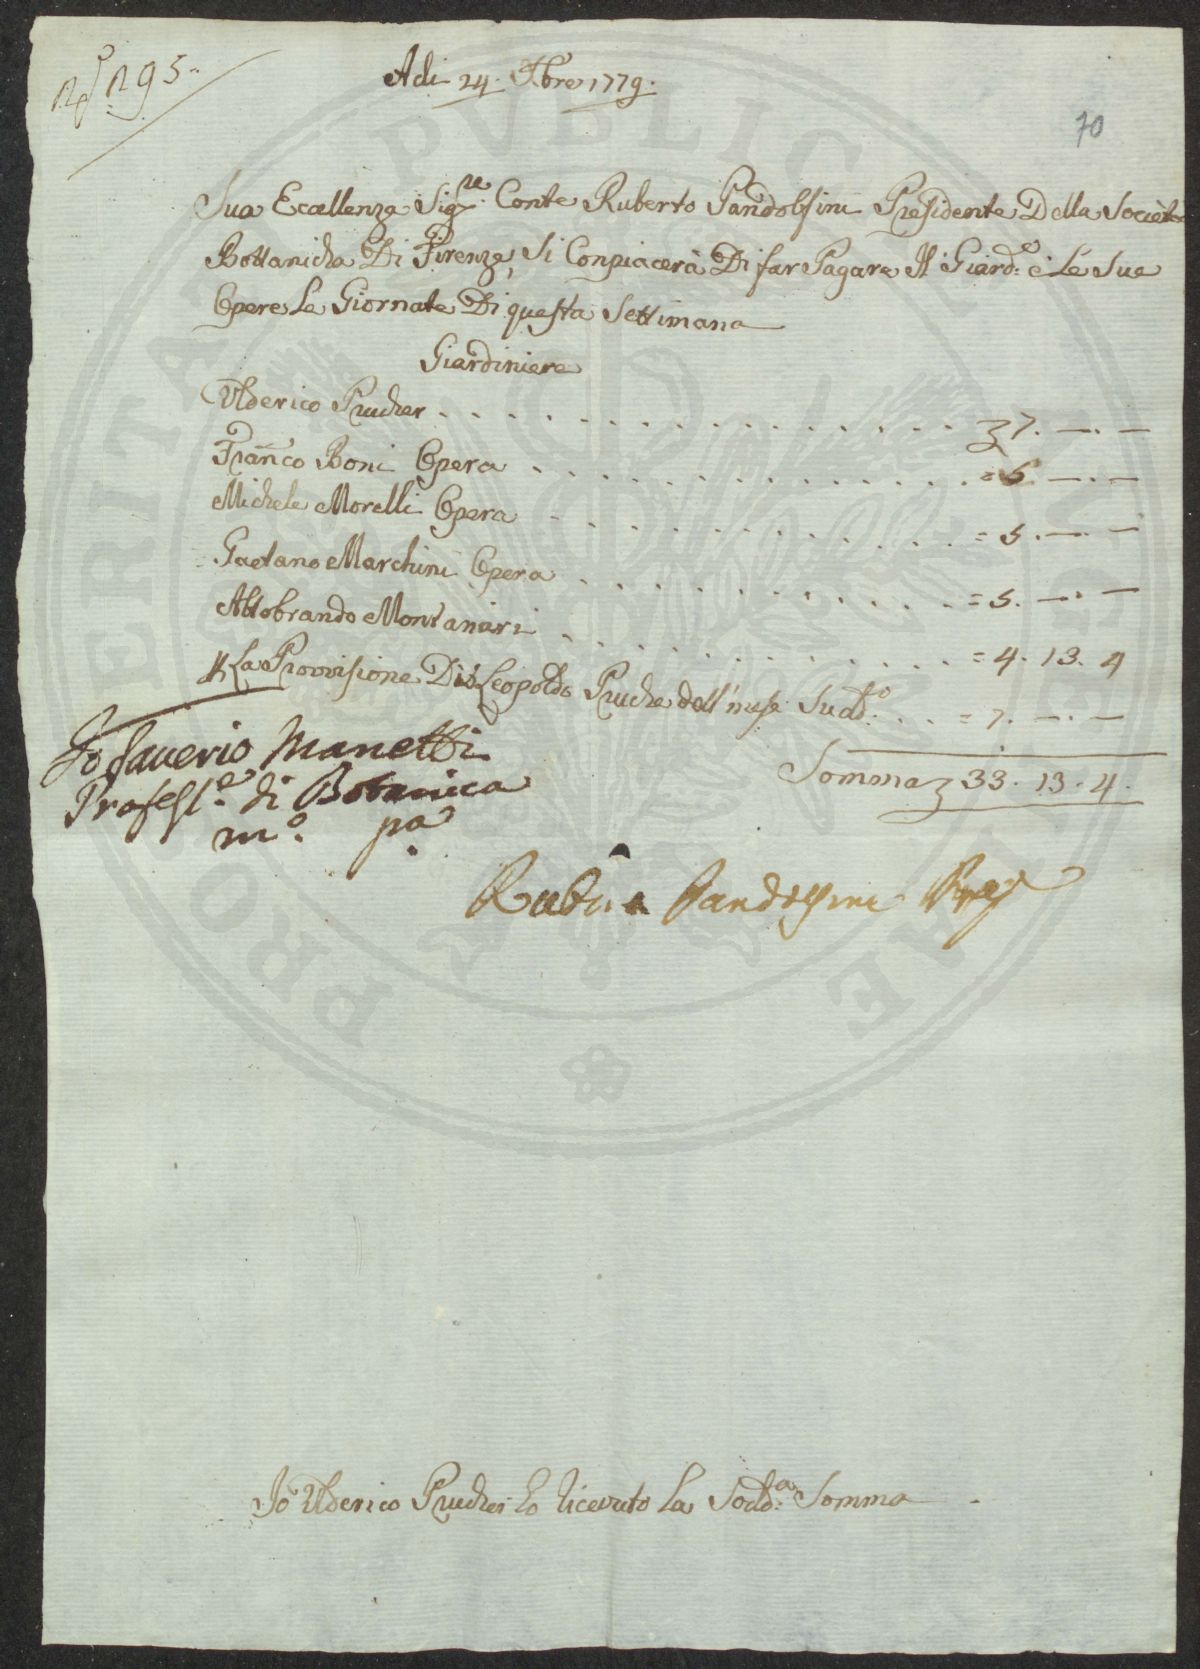 N.º 295.
Adi 24. Xbre 1779.
70
Sua Eccellenza Sig.re Conte Ruberto Pandolfini Presidente Della Società
Bottanicha Di Firenze, Si Conpiacerà Di far Pagare Il Giard.e è Lé Sue
Opere Le Giornate Di questa Settimana
Giardiniere
Ulderico Prucher . . . . . . . . . . . . . . £ 7. —. —
Franco Boni Opera . . . . . . . . . . . . = 5. —. —
Michele Morelli Opera . . . . . . . . . . . = 5. —. —
Gaetano Marchini Opera . . . . . . . . . . = 5. —. —
Altobrando Montanari . . . . . . . . . . = 4. 13. 4
La Provvisione Di Leopoldo Pruche dell' mese Sudd.o . . . = 7. —. —
Somma £ 33. 13. 4.
Io Saverio Manetti
Profess.e di Botanica
m.o pa
Pandolfini
Io Ulderico Prucher ho ricevuto la Sodd.a Somma
PRO VERITATE PVBLICA